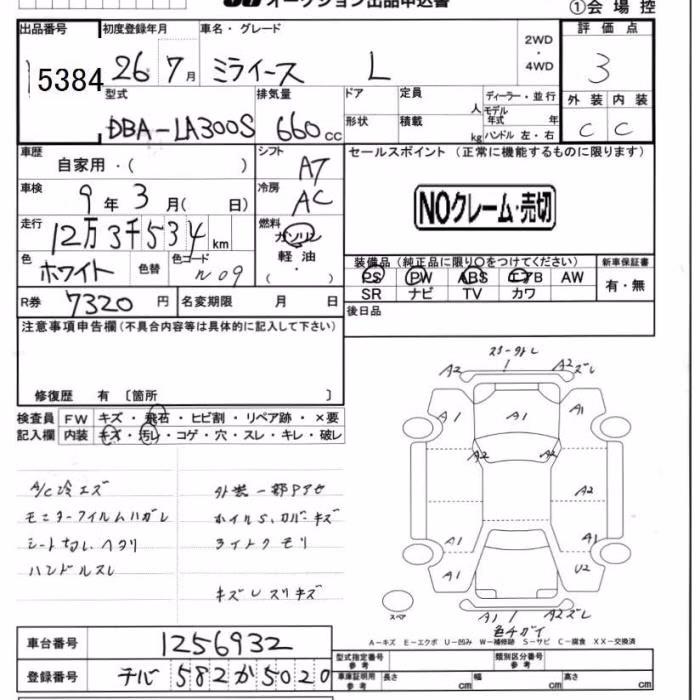 オークション出品申込書
①会場控
出品番号 初度登録年月 車名・グレード 2WD・4WD 評価点
5384 26年7月 ミライース L 3
型式 排気量 ドア 定員 人 ディーラー・並行 外装 内装
DBA-LA300S 660cc 形状 積載 kg モデル年式 年 ハンドル 左・右 C C
車歴 自家用・( ) シフト AT セールスポイント (正常に機能するものに限ります)
車検 9年3月( 日) 冷房 AC NOクレーム・売切
走行 12万3千534km 燃料 ガソリン 軽油 ・( )
色 ホワイト 色替 色コード W09
装備品 (純正品に限り○をつけてください) 新車保証書
PS PW ABS エアB AW 有・無
SR ナビ TV カワ
R券 7320円 名変期限 月 日 後日品
注意事項申告欄 (不具合内容等は具体的に記入して下さい)
修復歴 有 〔箇所 〕
検査員 FW キズ・飛石・ヒビ割・リペア跡・×要
記入欄 内装 キズ・汚レ・コゲ・穴・スレ・キレ・破レ
A/C冷エズ
モニターフィルムハガレ
シート切レ、ヘタリ
ハンドルスレ
外装一部Pアセ
ホイルS、カバーキズ
ライトクモリ
キズUスリキズ
A2 A2ズレ
A1 A1 A1
A2 A2
A2
A1 A1
A1 U2
スペア A1 A2ズレ
色チガイ
A-キズ E-エクボ U-凹み W-補修跡 S-サビ C-腐食 XX-交換済
車台番号 1256932
登録番号 チバ 582 か 5020
型式指定番号 参考 類別区分番号 参考
車庫証明用 参考 長さ cm 幅 cm 高さ cm